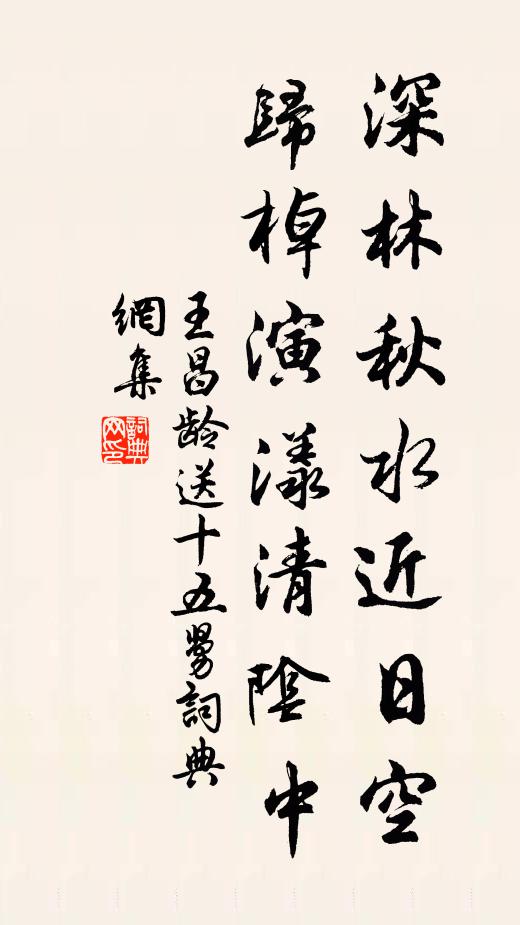 深林秋水近日空
歸棹演漾清陰中
王昌齡送十五舅詞典
網集
詞典網印